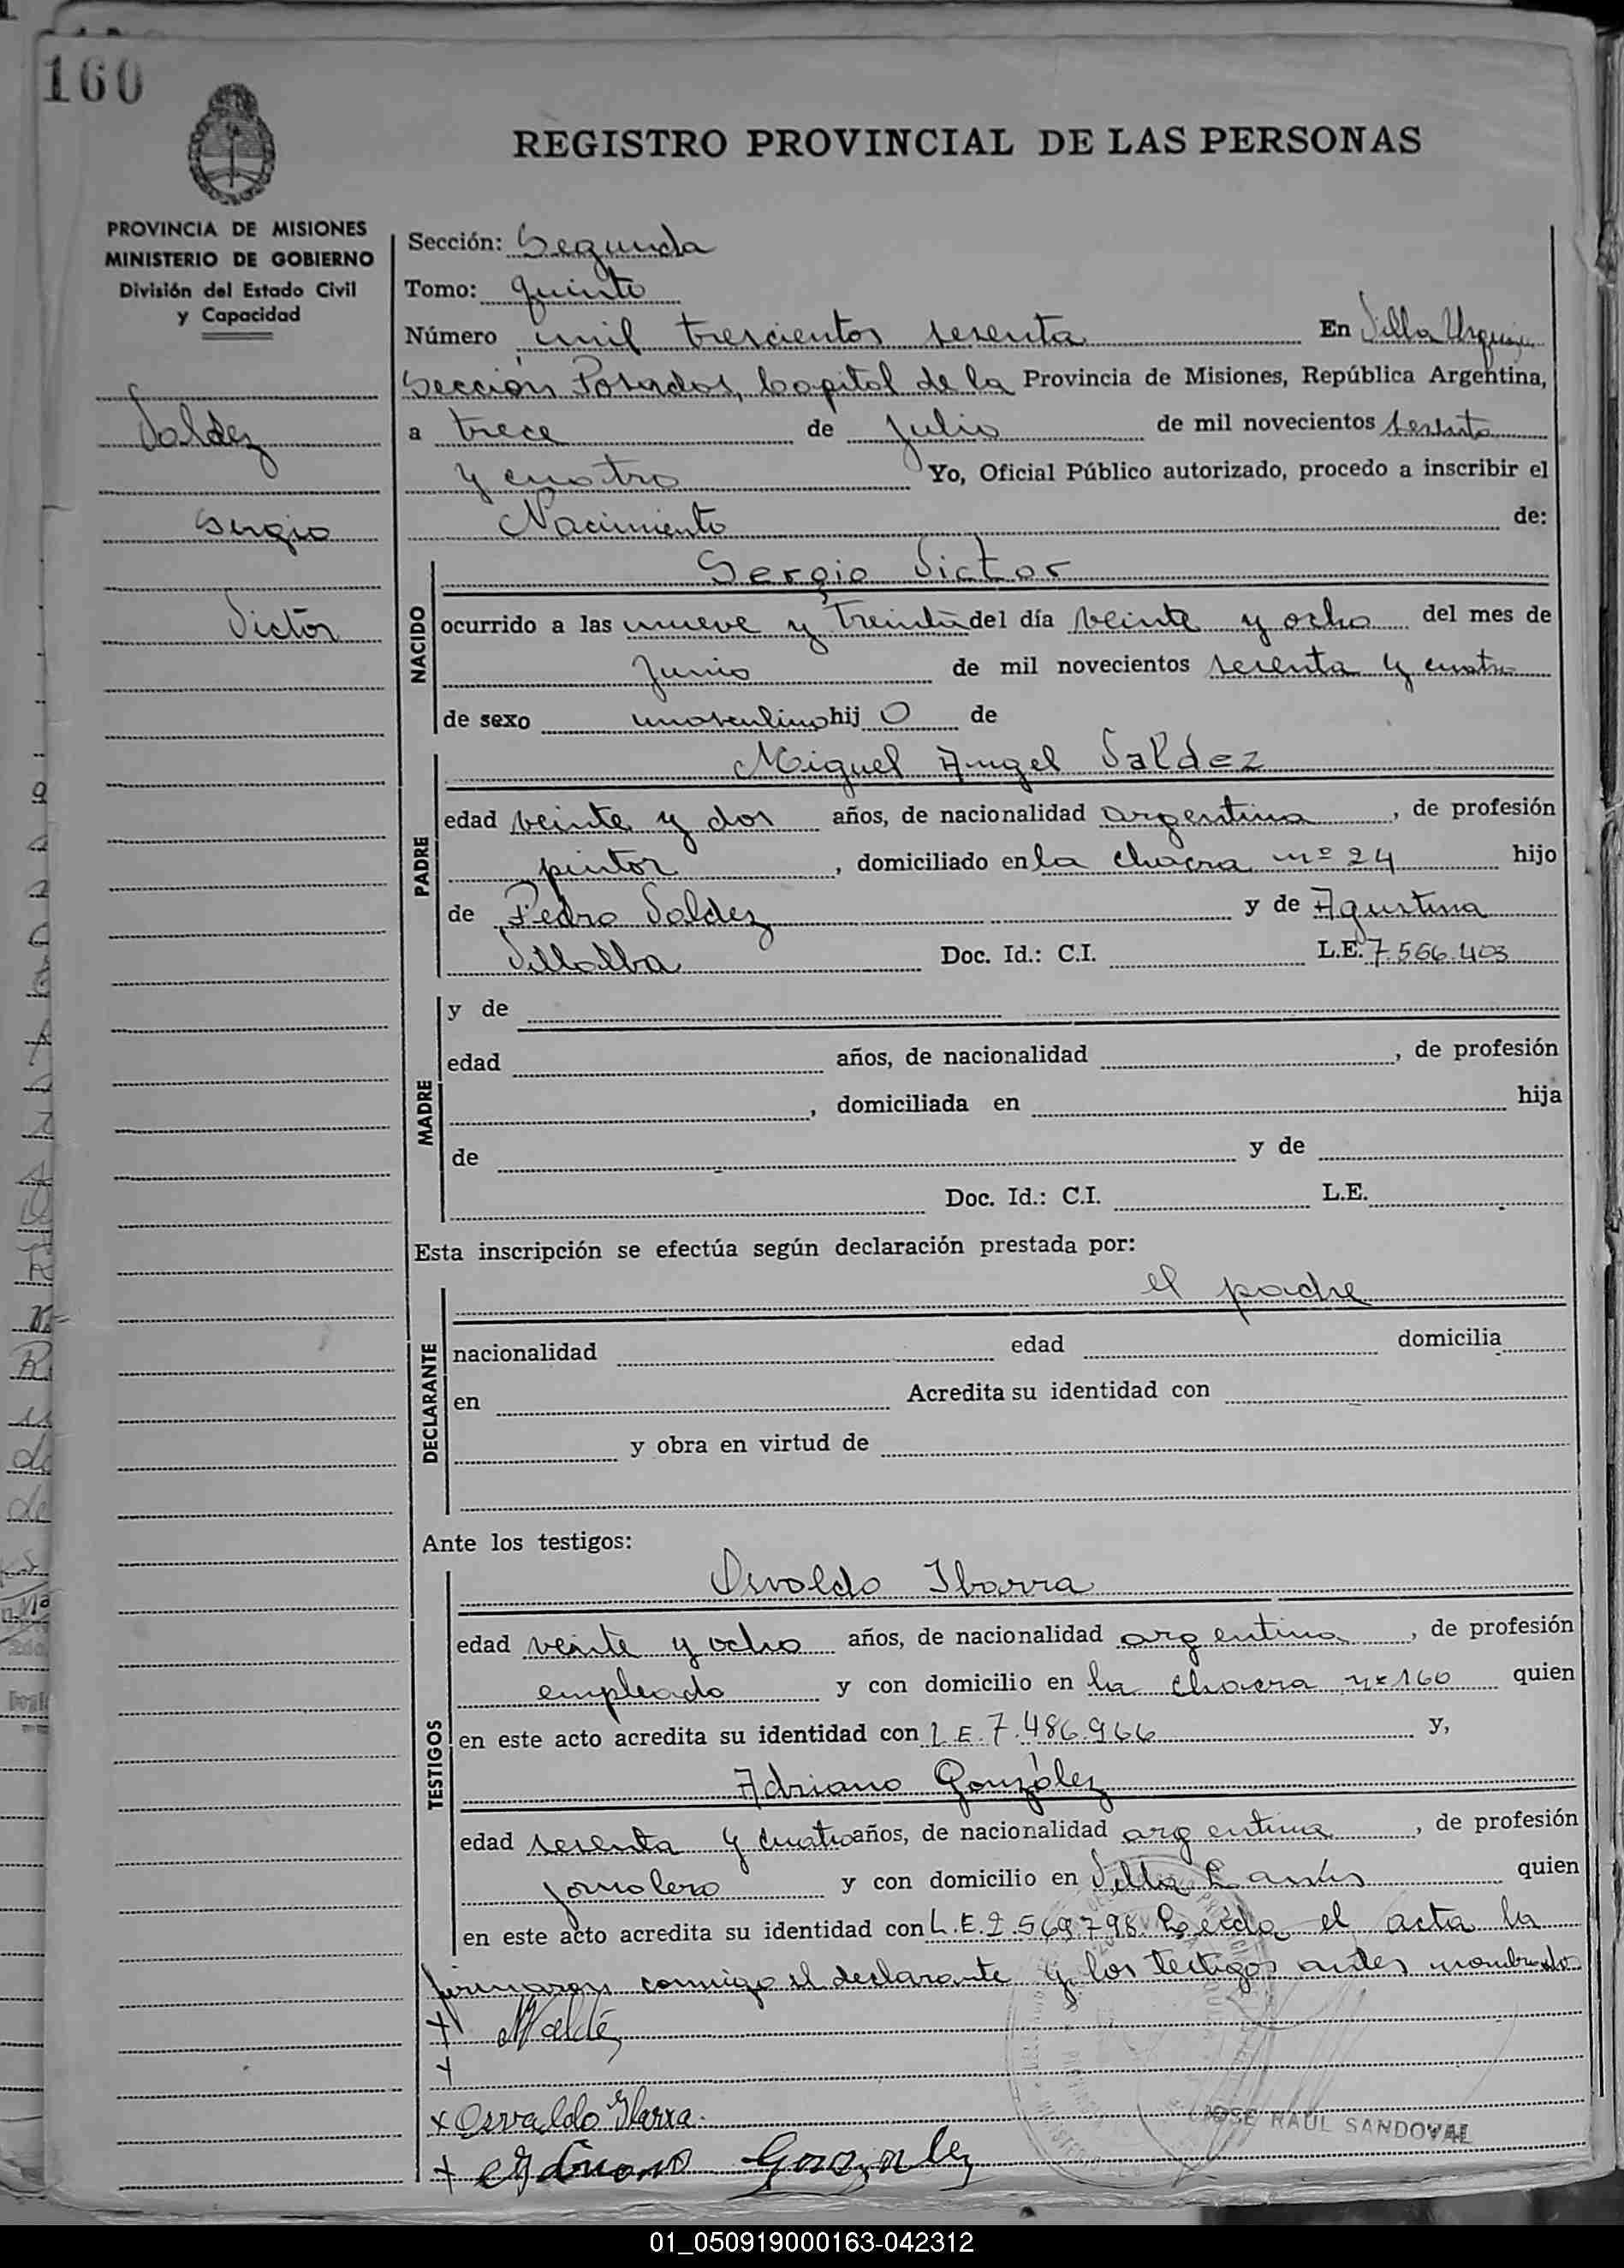 160
REGISTRO PROVINCIAL DE LAS PERSONAS
PROVINCIA DE MISIONES
MINISTERIO DE GOBIERNO
División del Estado Civil
y Capacidad
Valdez
Sergio
Victor
Sección: Segunda
Tomo: quinto
Número mil trescientos sesenta En Villa Urquiza
Sección Posadas, Capital de la Provincia de Misiones, República Argentina,
a trece de Julio de mil novecientos sesenta
y cuatro Yo, Oficial Público autorizado, procedo a inscribir el
Nacimiento de:
NACIDO
Sergio Victor
ocurrido a las nueve y treinta del día veinte y ocho del mes de
Junio de mil novecientos sesenta y cuatro
de sexo masculino hij o de
PADRE
Miguel Angel Valdez
edad veinte y dos años, de nacionalidad argentina, de profesión
pintor, domiciliado en la chacra nº 24 hijo
de Pedro Valdez y de Agustina
Villalba Doc. Id.: C.I. L.E. 7.566.403
MADRE
y de
edad años, de nacionalidad , de profesión
, domiciliada en hija
de y de
Doc. Id.: C.I. L.E.
Esta inscripción se efectúa según declaración prestada por:
DECLARANTE
el padre
nacionalidad edad domicilia
en Acredita su identidad con
y obra en virtud de
Ante los testigos:
TESTIGOS
Osvaldo Ibarra
edad veinte y ocho años, de nacionalidad argentina, de profesión
empleado y con domicilio en la chacra nº 160 quien
en este acto acredita su identidad con L.E. 7.486.966 y,
Adriano González
edad sesenta y cuatro años, de nacionalidad argentina, de profesión
jornalero y con domicilio en Villa Lanús quien
en este acto acredita su identidad con L.E. 2.569.798. Leída el acta la
firmaron conmigo el declarante y los testigos antes nombrado
+ MValdez
+
x Osvaldo Ibarra.
+ Adriano Gonzalez
JOSE RAUL SANDOVAL
01_050919000163-042312